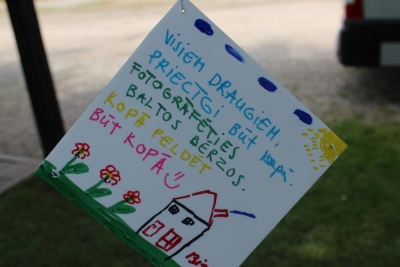 VISIEM DRAUGIEM,
PRIECĪGI BŪT kopā.
FOTOGRĀFĒTIES
BALTOS BĒRZOS.
KOPĀ PELDĒT
BŪT KOPĀ